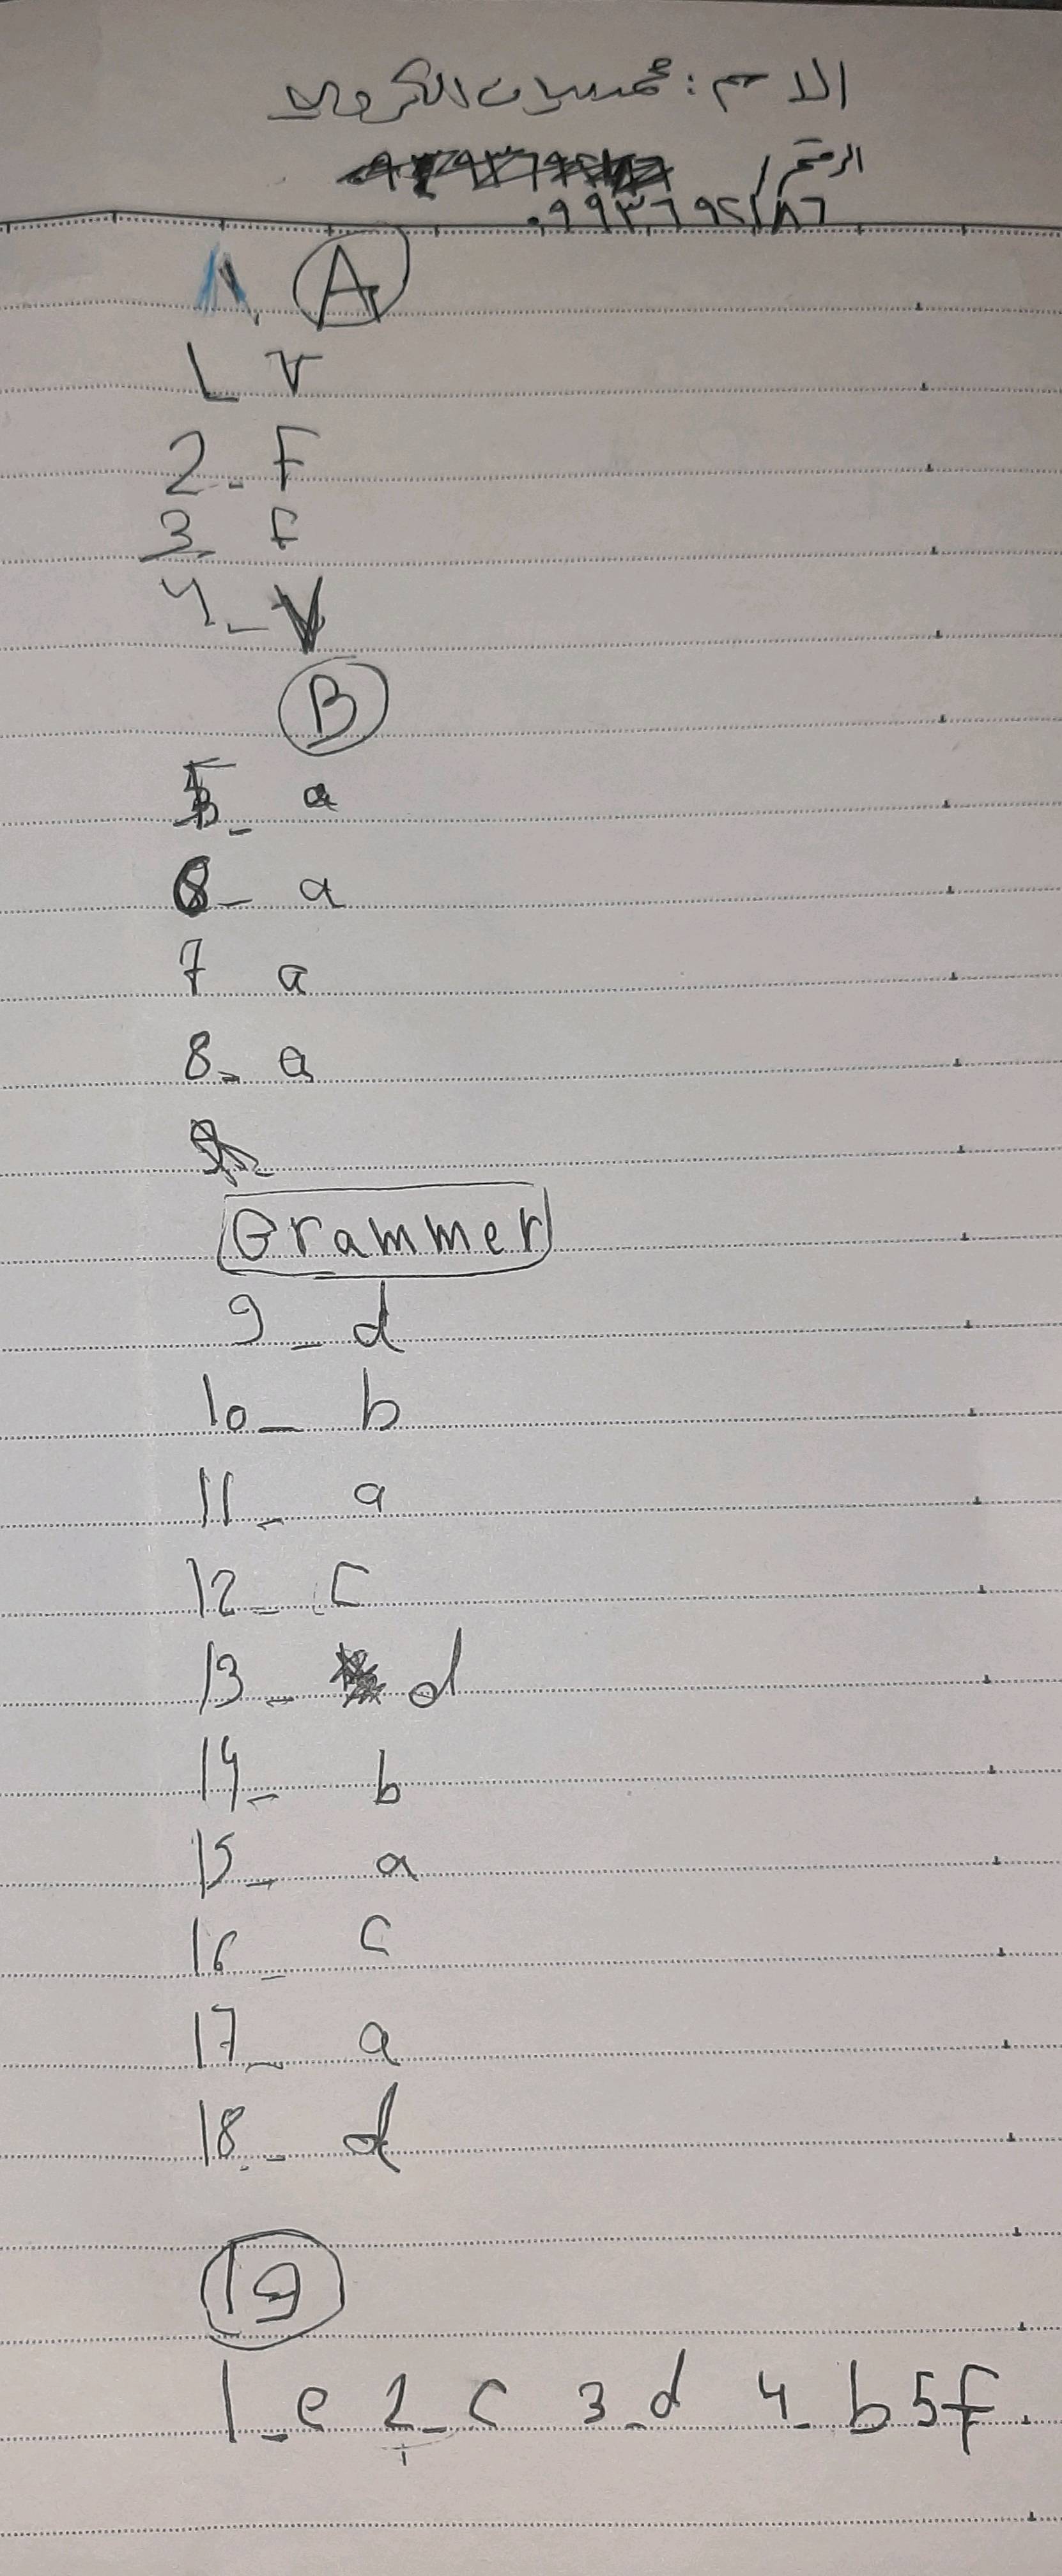 الاسم :
الرقم / ٠٩٩٣٦٩٥٢١٨٦
A
1_ V
2_ F
3_ F
4_ V
B
5_ a
6_ a
7 a
8_ a
Grammer
9_ d
10_ b
11_ a
12_ c
13_ d
14_ b
15_ a
16_ c
17_ a
18_ d
19
1_e 2_c 3_d 4_b 5 F